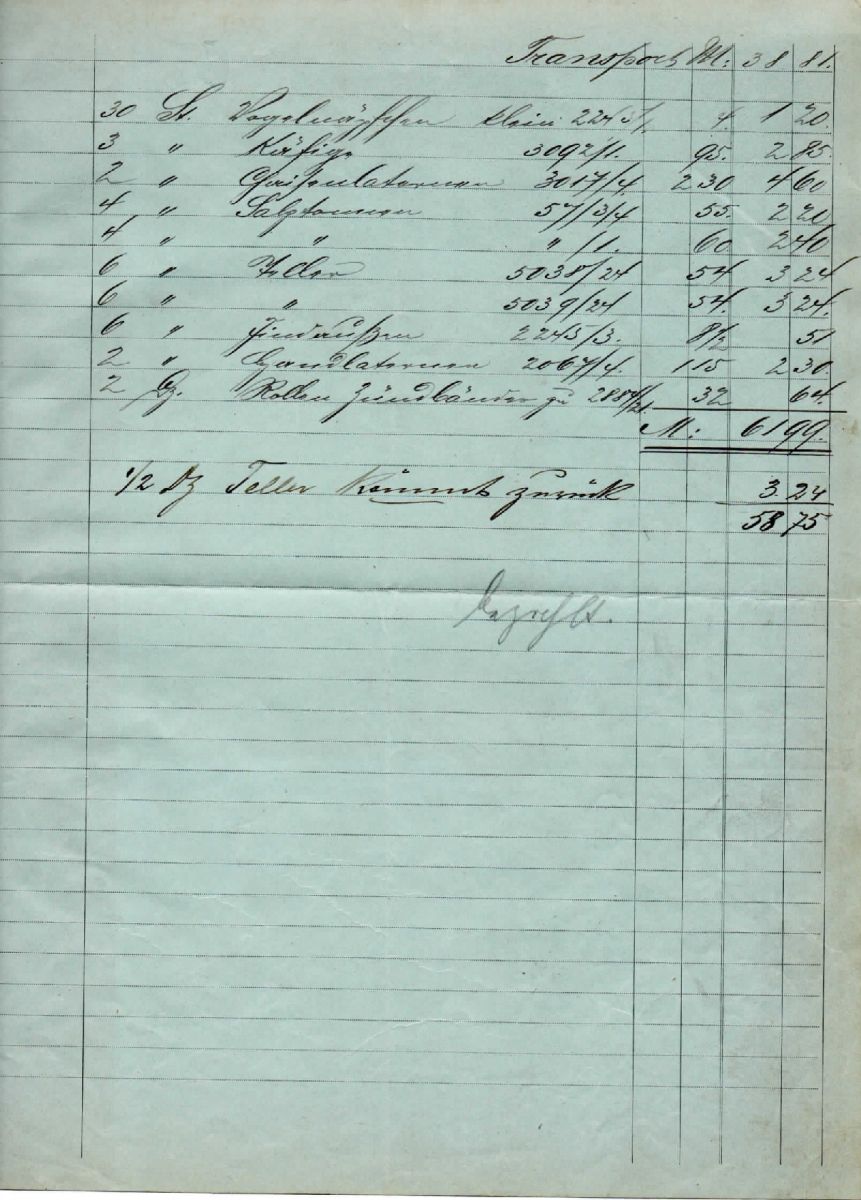 Transport M: 38 81.
30 St. Vogelnäpfchen klein 2243/1 4. 1 20.
3 " Käfige 3092/1. 95. 2 85.
2 " 3017/4. 2 30 4 60
4 " Salztonnen 57/3/4 55. 2 20
4 " " " /1. 60 2 40
6 " Teller 5038/24 54 3 24
6 " " 5039/24 54. 3 24.
6 " 2245/3. 8 1/2 51
2 " Handlaternen 2067/4. 1 15 2 30.
2 Dz. Rollen Zündbänder zu 32 64.
M: 61 99.
1/2 Dz Teller kommt zurück 3 24
58 75
bezahlt.